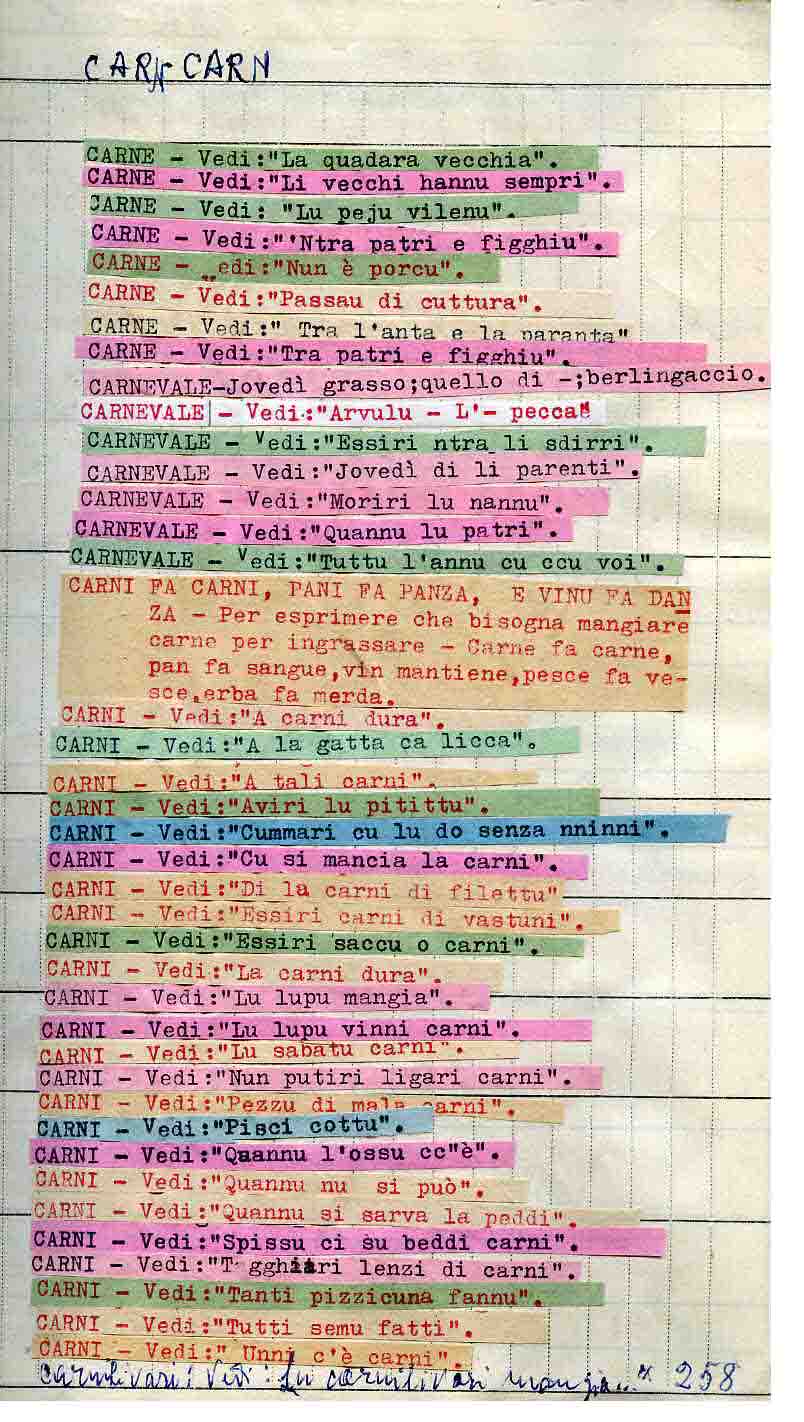 CARN CARN
CARNE - Vedi:"La quadara vecchia".
CARNE - Vedi:"Li vecchi hannu sempri".
CARNE - Vedi: "Lu peju vilenu".
CARNE - Vedi:"'Ntra patri e figghiu".
CARNE - edi:"Nun è porcu".
CARNE - Vedi:"Passau di cuttura".
CARNE - Vedi:" Tra l'anta e la paranta"
CARNE - Vedi:"Tra patri e figghiu".
CARNEVALE-Jovedì grasso;quello di -;berlingaccio.
CARNEVALE - Vedi:"Arvulu - L'- pecca"
CARNEVALE - Vedi:"Essiri ntra li sdirri".
CARNEVALE - Vedi:"Jovedì di li parenti".
CARNEVALE - Vedi:"Moriri lu nannu".
CARNEVALE - Vedi:"Quannu lu patri".
CARNEVALE - Vedi:"Tuttu l'annu cu ccu voi".
CARNI FA CARNI, PANI FA PANZA, E VINU FA DAN
ZA - Per esprimere che bisogna mangiare
carne per ingrassare - Carne fa carne,
pan fa sangue,vin mantiene,pesce fa ve-
sce,erba fa merda.
CARNI - Vedi:"A carni dura".
CARNI - Vedi:"A la gatta ca licca".
CARNI - Vedi:"A tali carni".
CARNI - Vedi:"Aviri lu pitittu".
CARNI - Vedi:"Cummari cu lu do senza nninni".
CARNI - Vedi:"Cu si mancia la carni".
CARNI - Vedi:"Di la carni di filettu"
CARNI - Vedi:"Essiri carni di vastuni".
CARNI - Vedi:"Essiri saccu o carni".
CARNI - Vedi:"La carni dura".
CARNI - Vedi:"Lu lupu mangia".
CARNI - Vedi:"Lu lupu vinni carni".
CARNI - Vedi:"Lu sabatu carni".
CARNI - Vedi:"Nun putiri ligari carni".
CARNI - Vedi:"Pezzu di mala carni".
CARNI - Vedi:"Pisci cottu".
CARNI - Vedi:"Quannu l'ossu cc"è".
CARNI - Vedi:"Quannu nu si può".
CARNI - Vedi:"Quannu si sarva la peddi".
CARNI - Vedi:"Spissu ci su beddi carni".
CARNI - Vedi:"T gghiari lenzi di carni".
CARNI - Vedi:"Tanti pizzicuna fannu".
CARNI - Vedi:"Tutti semu fatti".
CARNI - Vedi:" Unni c'è carni".
Carnilivari: Vedi: Lu carnilivari mangia..." 258